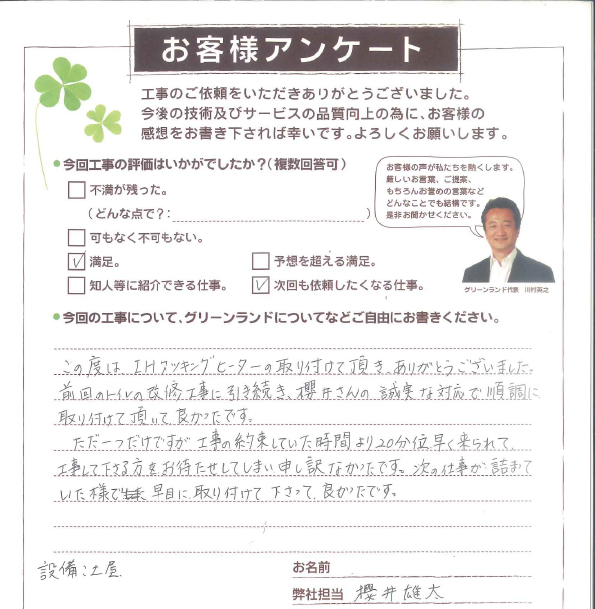 お客様アンケート
工事のご依頼をいただきありがとうございました。
今後の技術及びサービスの品質向上の為に、お客様の
感想をお書き下されば幸いです。よろしくお願いします。
●今回工事の評価はいかがでしたか?(複数回答可)
不満が残った。
(どんな点で?: )
可もなく不可もない。
満足。
予想を超える満足。
知人等に紹介できる仕事。
次回も依頼したくなる仕事。
お客様の声が私たちを熱くします。
厳しいお言葉、ご提案、
もちろんお誉めの言葉など
どんなことでも結構です。
是非お聞かせください。
グリーンランド代表 川村英之
●今回の工事について、グリーンランドについてなどご自由にお書きください。
この度は、IHクッキングヒーターの取り付けて頂き、ありがとうございました。
前回のトイレの改修工事に引き続き、櫻井さんの誠実な対応で順調に
取り付けて頂いて良かったです。
ただ一つだけですが工事の約束していた時間より20分位早く来られて、
工事して下さる方をお待たせしてしまい申し訳なかったです。次の仕事が詰まって
いた様で 早目に取り付けて下さって、良かったです。
設備:土屋
お名前
弊社担当 櫻井雄太